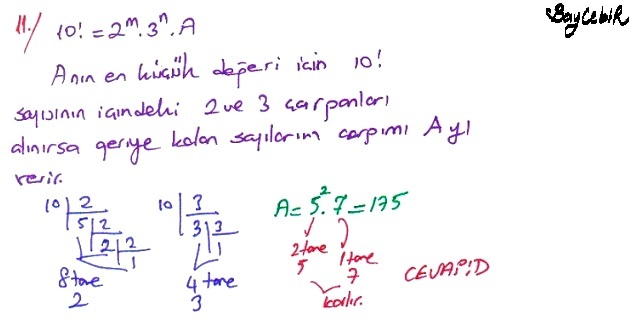 BayCebir
11.) 10! = 2^m . 3^n . A
A nın en küçük değeri için 10!
sayısının içindeki 2 ve 3 çarpanları
alınırsa geriye kalan sayıların çarpımı A yı
verir.
10 | 2
5 | 2
2 | 2
1
8 tane
2
10 | 3
3 | 3
1
4 tane
3
A = 5^2 . 7 = 175
2 tane
5
1 tane
7
kalır.
CEVAP: D